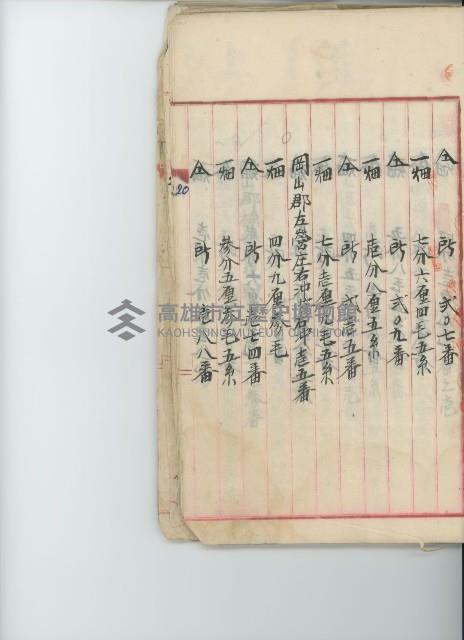 仝 所 弍〇七番
一畑 七分六厘四毛五糸
仝 所 弍〇九番
一畑 壱分八厘五糸
仝 所 弍壱五番
一畑 七分壱厘九毛五糸
岡山郡左營庄右冲字右冲壱五番
一畑 四分九厘参毛
仝 所 七四番
一畑 参分五厘毛五糸
仝 所 壱八八番
20
高雄市立歷史博物館
KAOHSIUNG MUSEUM OF HISTORY